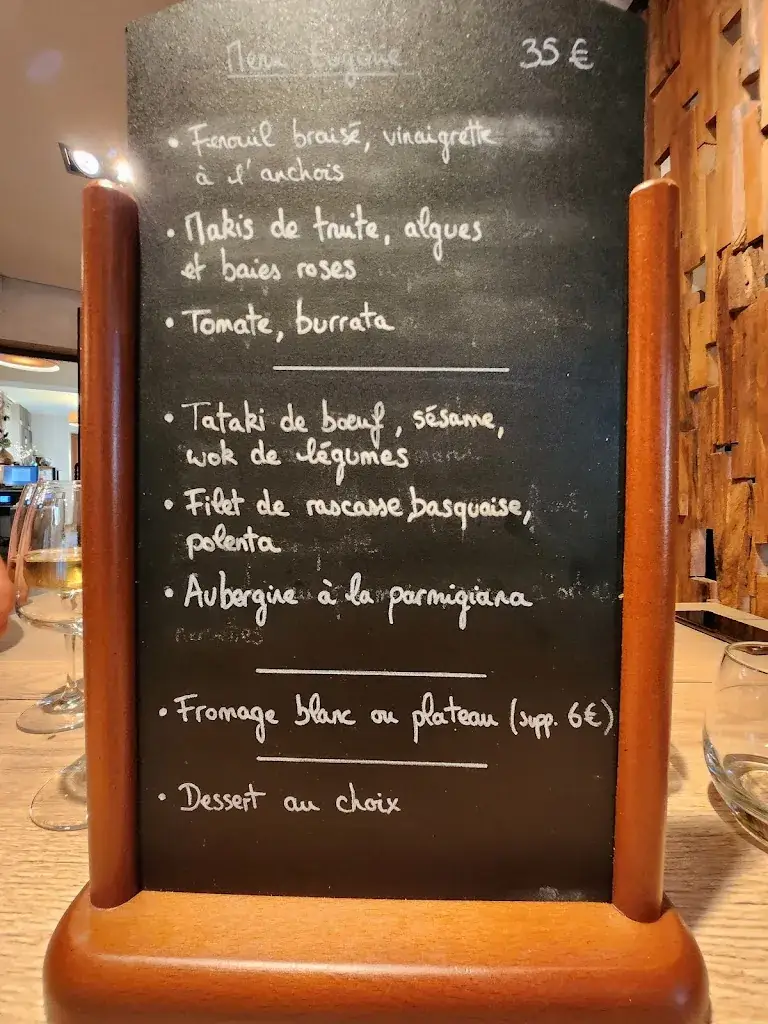 Menu 35 €
• Fenouil braisé, vinaigrette
à l'anchois
• Makis de truite, algues
et baies roses
• Tomate, burrata
• Tataki de bœuf, sésame,
wok de légumes
• Filet de rascasse basquaise,
polenta
• Aubergine à la parmigiana
• Fromage blanc ou plateau (supp. 6€)
• Dessert au choix